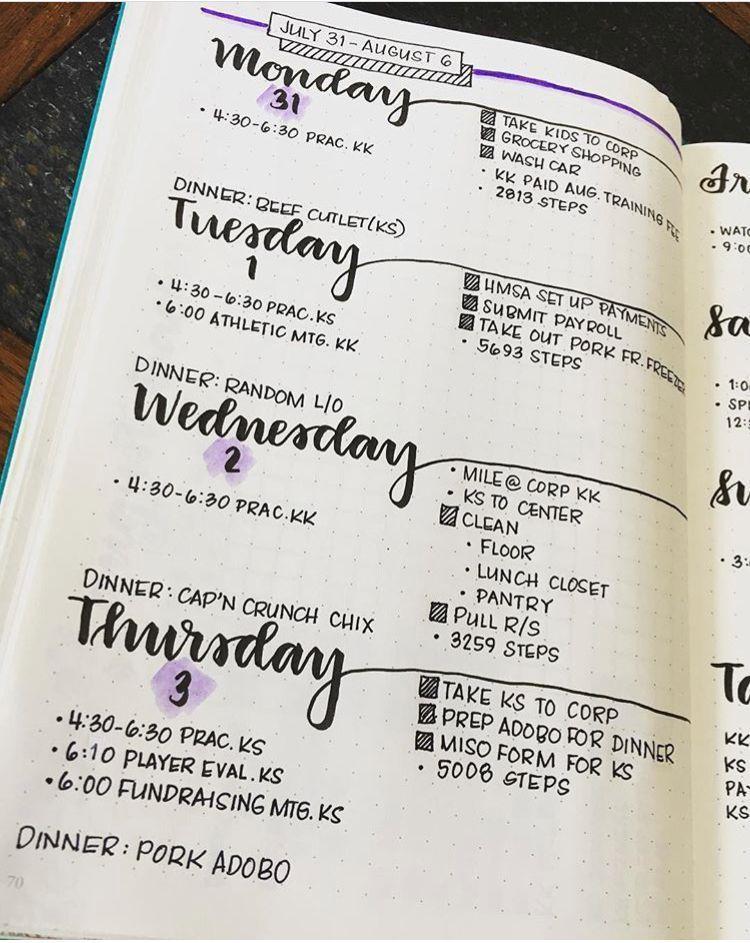 JULY 31 - AUGUST 6
Monday
31
• 4:30-6:30 PRAC. KK
TAKE KIDS TO CORP
GROCERY SHOPPING
WASH CAR
• KK PAID AUG. TRAINING FEE
• 2813 STEPS
DINNER: BEEF CUTLET (KS)
Tuesday
1
• 4:30-6:30 PRAC. KS
• 6:00 ATHLETIC MTG. KK
HMSA SET UP PAYMENTS
SUBMIT PAYROLL
TAKE OUT PORK FR. FREEZER
• 5693 STEPS
DINNER: RANDOM L/O
Wednesday
2
• 4:30-6:30 PRAC. KK
• MILE @ CORP KK
• KS TO CENTER
CLEAN
• FLOOR
• LUNCH CLOSET
• PANTRY
PULL R/S
• 3259 STEPS
DINNER: CAP'N CRUNCH CHIX
Thursday
3
• 4:30-6:30 PRAC. KS
• 6:10 PLAYER EVAL. KS
• 6:00 FUNDRAISING MTG. KS
TAKE KS TO CORP
PREP ADOBO FOR DINNER
MISO FORM FOR KS
• 5008 STEPS
DINNER: PORK ADOBO
70
Fr
• WATC
• 9:00
Sa
• 1:0
• SP
12:
Su
• 3:
To
KK
KS
PA
KS